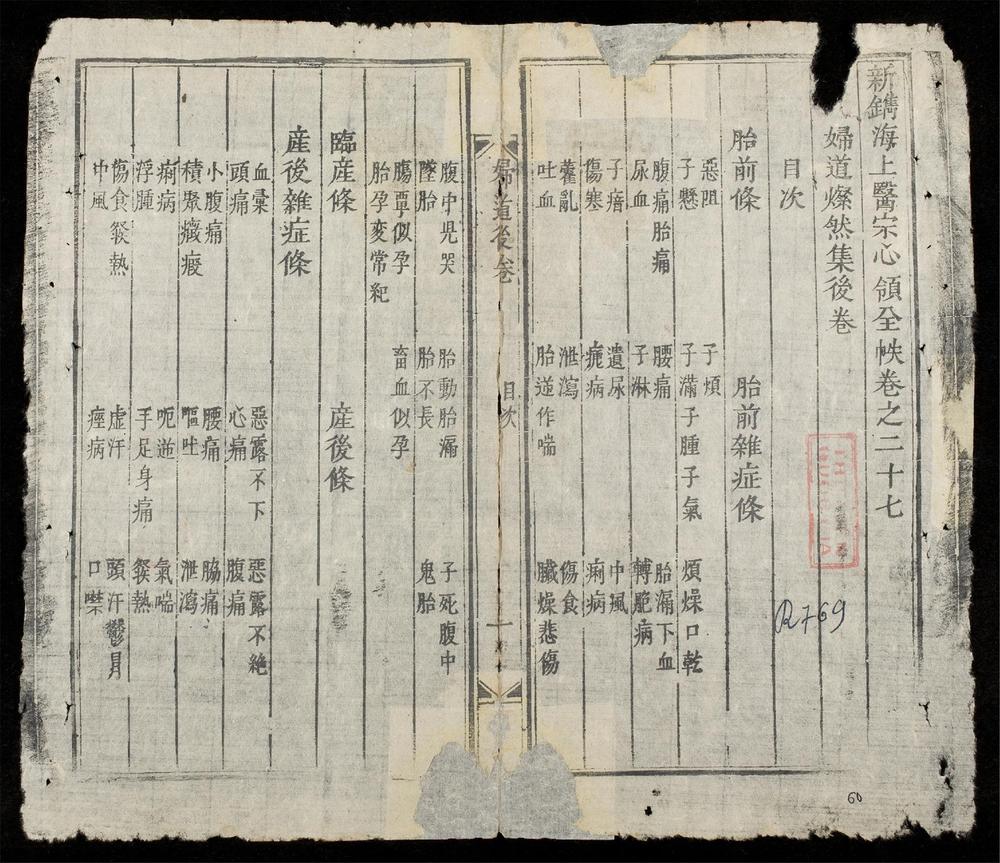 新鐫海上醫宗心領全帙卷之二十七
婦道燦然集後卷
目次
胎前條 胎前雜症條
惡阻 子煩 煩燥口乾
子懸 子滿子腫子氣
腹痛胎痛 腰痛 胎漏下血
尿血 子淋 轉脆病
子瘖 遺尿 中風
傷寒 瘧病 痢病
藿亂 泄瀉 傷食
吐血 胎逆作喘 臟燥悲傷
婦道後卷 目次 一
腹中児哭 胎動胎漏 子死腹中
墜胎 胎不長 鬼胎
腸覃似孕 畜血似孕
胎孕変常紀
臨産條 産後條
産後雜症條
血彙 惡露不下 惡露不絶
頭痛 心痛 腹痛
小腹痛 腰痛 脇痛
積聚癥瘕 嘔吐 泄瀉
痢病 呃逆 氣喘
浮腫 手足身痛 發熱
傷食發熱 虚汗 頭汗鬱冒
中風 痙病 口噤
R769
60